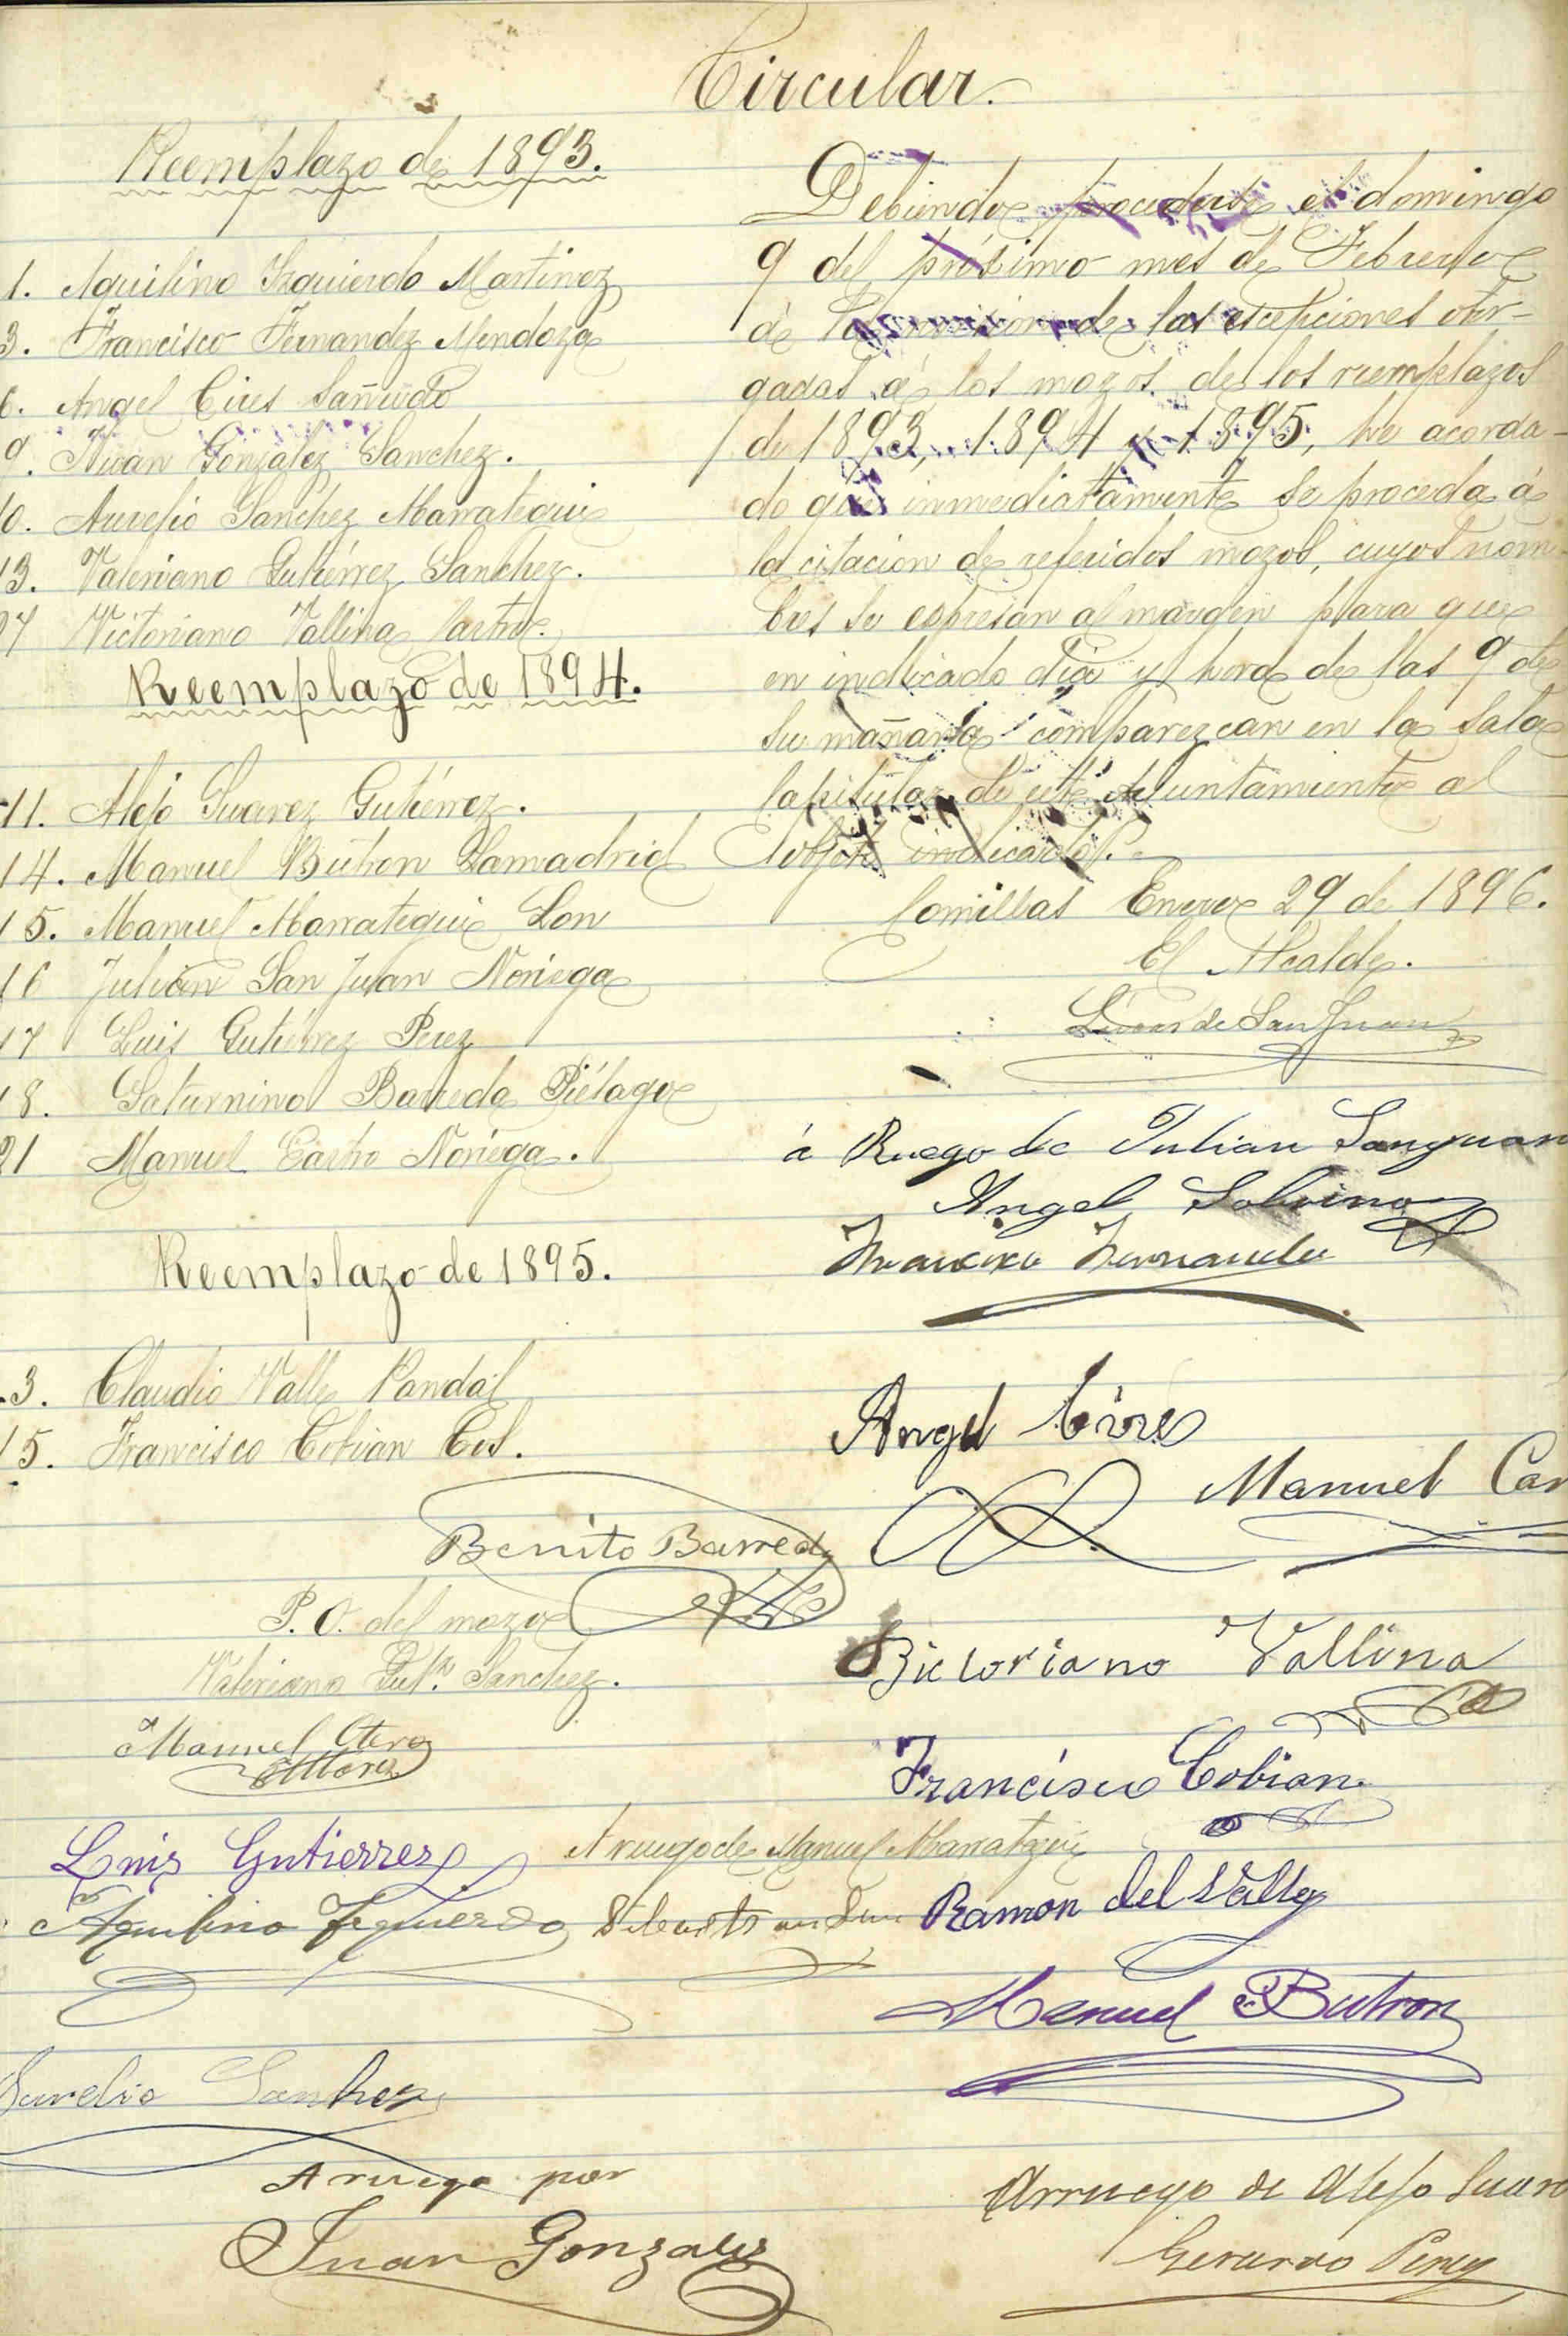 Circular.
Reemplazo de 1893.
1. Aquilino Izquierdo Martinez
3. Francisco Fernandez Mendoza
6. Angel Cires Sañudo
9. Juan Gonzalez Sanchez.
10. Aurelio Sanchez Marrategui
13. Valeriano Gutiérrez Sanchez.
27 Victoriano Vallina Castro.
Reemplazo de 1894.
11. Alejo Suarez Gutiérrez.
14. Manuel Butron Lamadrid
15. Manuel Marrategui Lon
16 Julián San Juan Noriega
17 Luis Gutiérrez Perez
18. Saturnino Barreda Piélago
21 Manuel Castro Noriega.
Reemplazo de 1895.
3. Claudio Valle Pandal
15. Francisco Cobian Cos.
Debiendo procederse el domingo
9 del próximo mes de Febrero
á la revision de las escepciones otor-
gadas á los mozos de los reemplazos
de 1893, 1894 y 1895, he acorda-
do que inmediatamente se proceda á
la citacion de referidos mozos, cuyos nom-
bres se espresan al margen para que
en indicado dia y hora de las 9 de
su mañana comparezcan en la Sala
Capitular de este Ayuntamiento al
objeto indicado.
Comillas Enero 29 de 1896.
El Alcalde.
Lucas de San Juan
á Ruego de Julian Sanjuan
Angel Sobrino
Francisco Fernandez
Angel Cires
Manuel Cas
Benito Barreda
P. O. del mozo
Valeriano Gut.z Sanchez.
Manuel Otero
Bictoriano Vallina
Francisco Cobian
Luis Gutierrez
A ruego de Manuel Marrategui
Aquilino Izquierdo
Ramon del Valle
Manuel Butron
Aurelio Sanchez
A ruego por
Juan Gonzalez
Arruego de Alejo Suare
Gerardo Perez